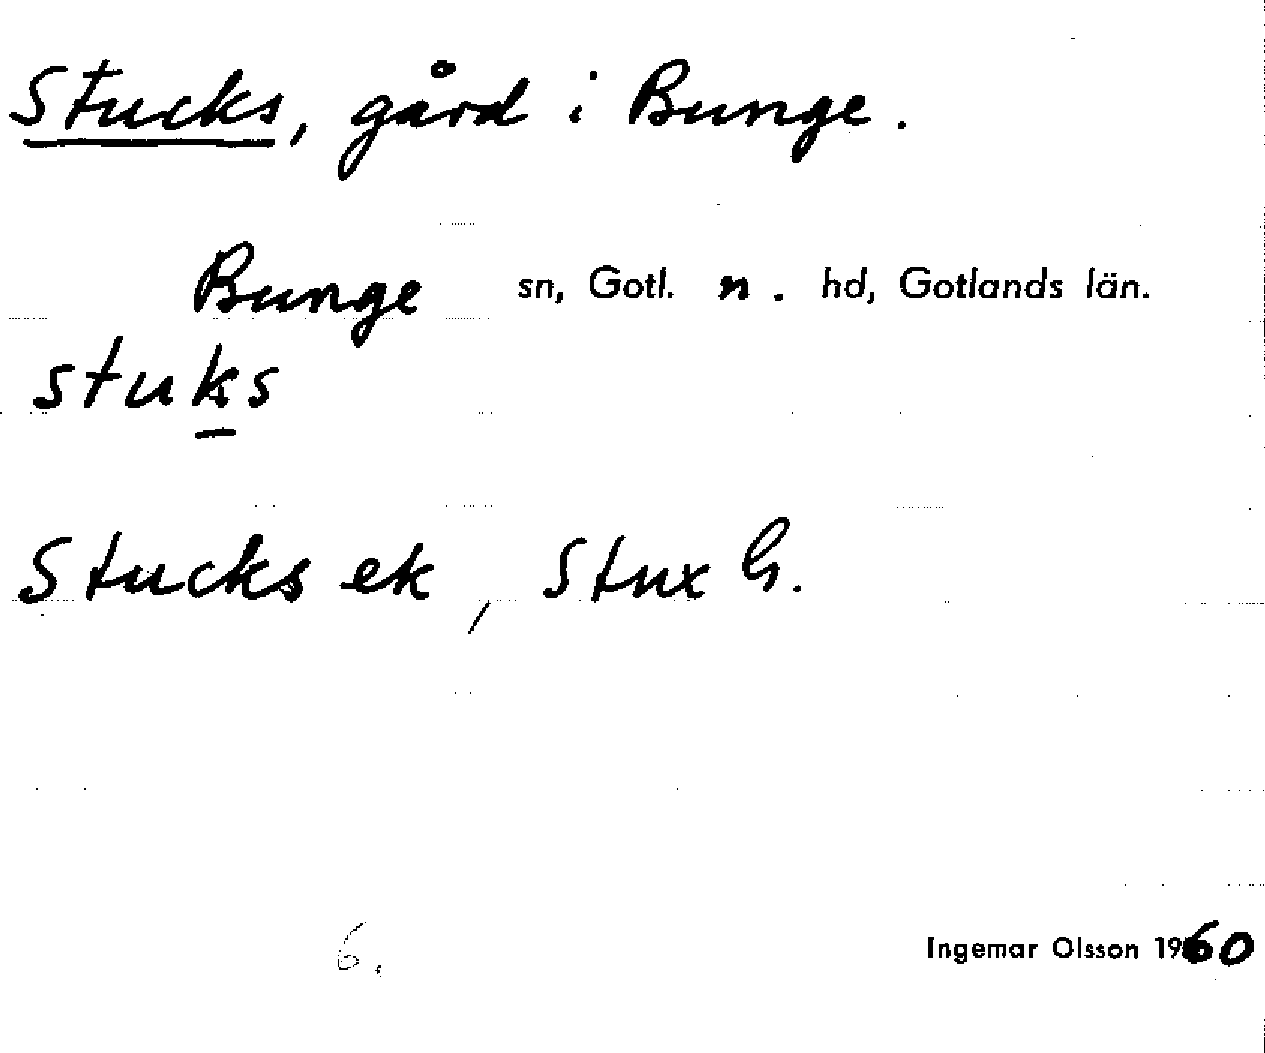 Stucks, gård i Bunge.
Bunge sn, Gotl. n. hd, Gotlands län.
stuks
Stucks ek, Stux G.
6.
Ingemar Olsson 1960